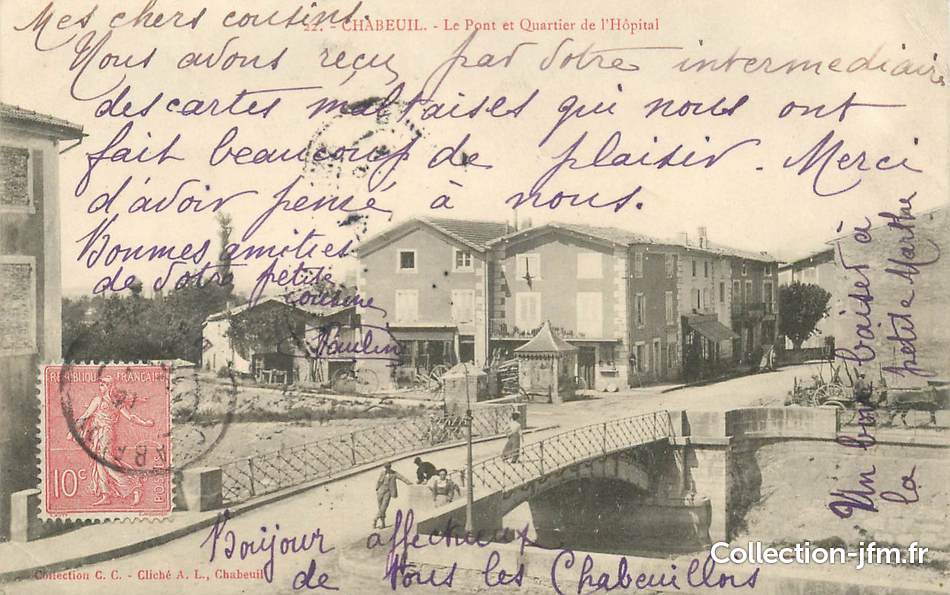 Mes chers cousins.
22. - CHABEUIL. - Le Pont et Quartier de l'Hôpital
Nous avons reçu par votre intermediaire
des cartes maltaises qui nous ont
fait beaucoup de plaisir. Merci
d'avoir pensé à nous.
Bonnes amitiés
de votre petite
cousine
Pauline
Un bon baiser à
la petite Marthe
REPUBLIQUE FRANÇAISE
10c
POSTES
CHABEUIL
Bonjour affectueux
de tous les Chabeuillois
Collection C. C. - Cliché A. L., Chabeuil
Collection-jfm.fr